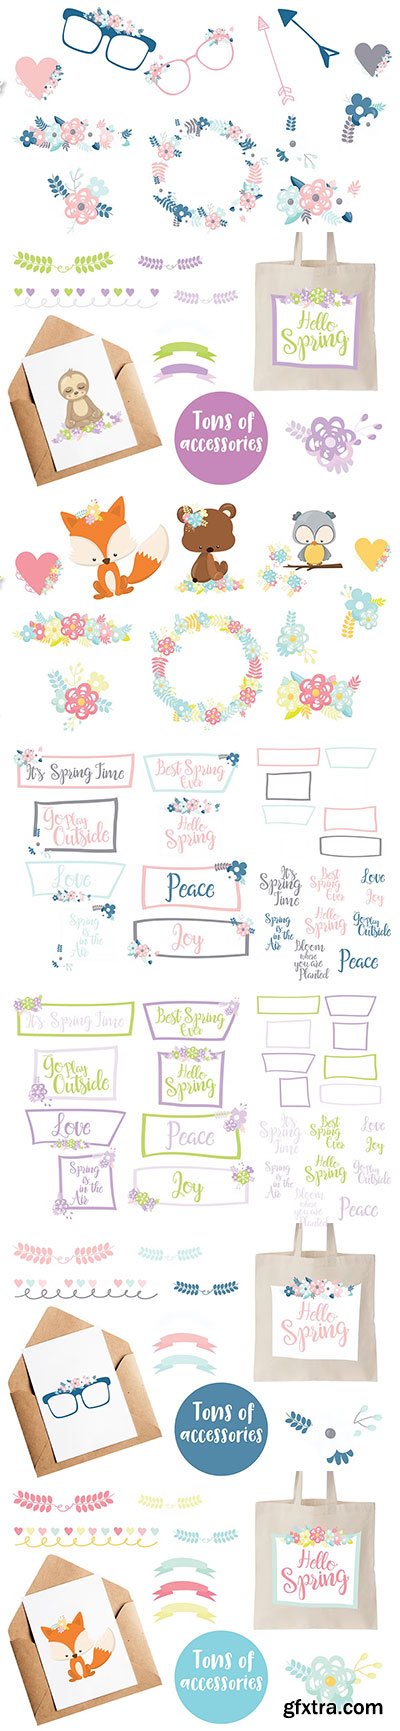 Hello
Spring
Tons of
accessories
It's Spring Time
Best Spring
Ever
Go Play
Outside
Hello
Spring
Love
Peace
Spring
is
in the
Air
Joy
It's
Spring
Time
Best
Spring
Ever
Love
Joy
Spring
is in
the Air
Hello
Spring
Go Play
Outside
Bloom
where
you are
Planted
Peace
It's Spring Time
Best Spring
Ever
Go Play
Outside
Hello
Spring
Love
Peace
Spring
is
in the
Air
Joy
It's
Spring
Time
Best
Spring
Ever
Love
Joy
Spring
is in
the Air
Hello
Spring
Go Play
Outside
Bloom
where
you are
Planted
Peace
Hello
Spring
Tons of
accessories
Hello
Spring
Tons of
accessories
gfxtra.com